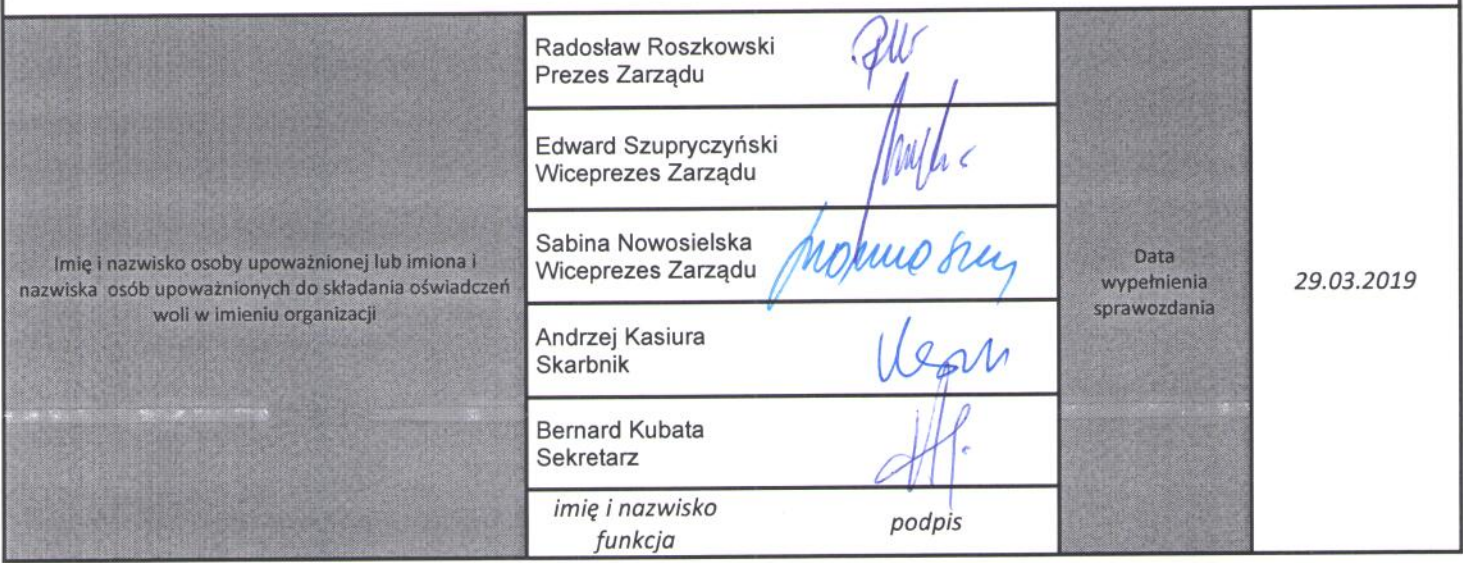 Imię i nazwisko osoby upoważnionej lub imiona i
nazwiska osób upoważnionych do składania oświadczeń
woli w imieniu organizacji
Radosław Roszkowski
Prezes Zarządu
Edward Szupryczyński
Wiceprezes Zarządu
Sabina Nowosielska
Wiceprezes Zarządu
Andrzej Kasiura
Skarbnik
Bernard Kubata
Sekretarz
imię i nazwisko
funkcja
podpis
Data
wypełnienia
sprawozdania
29.03.2019